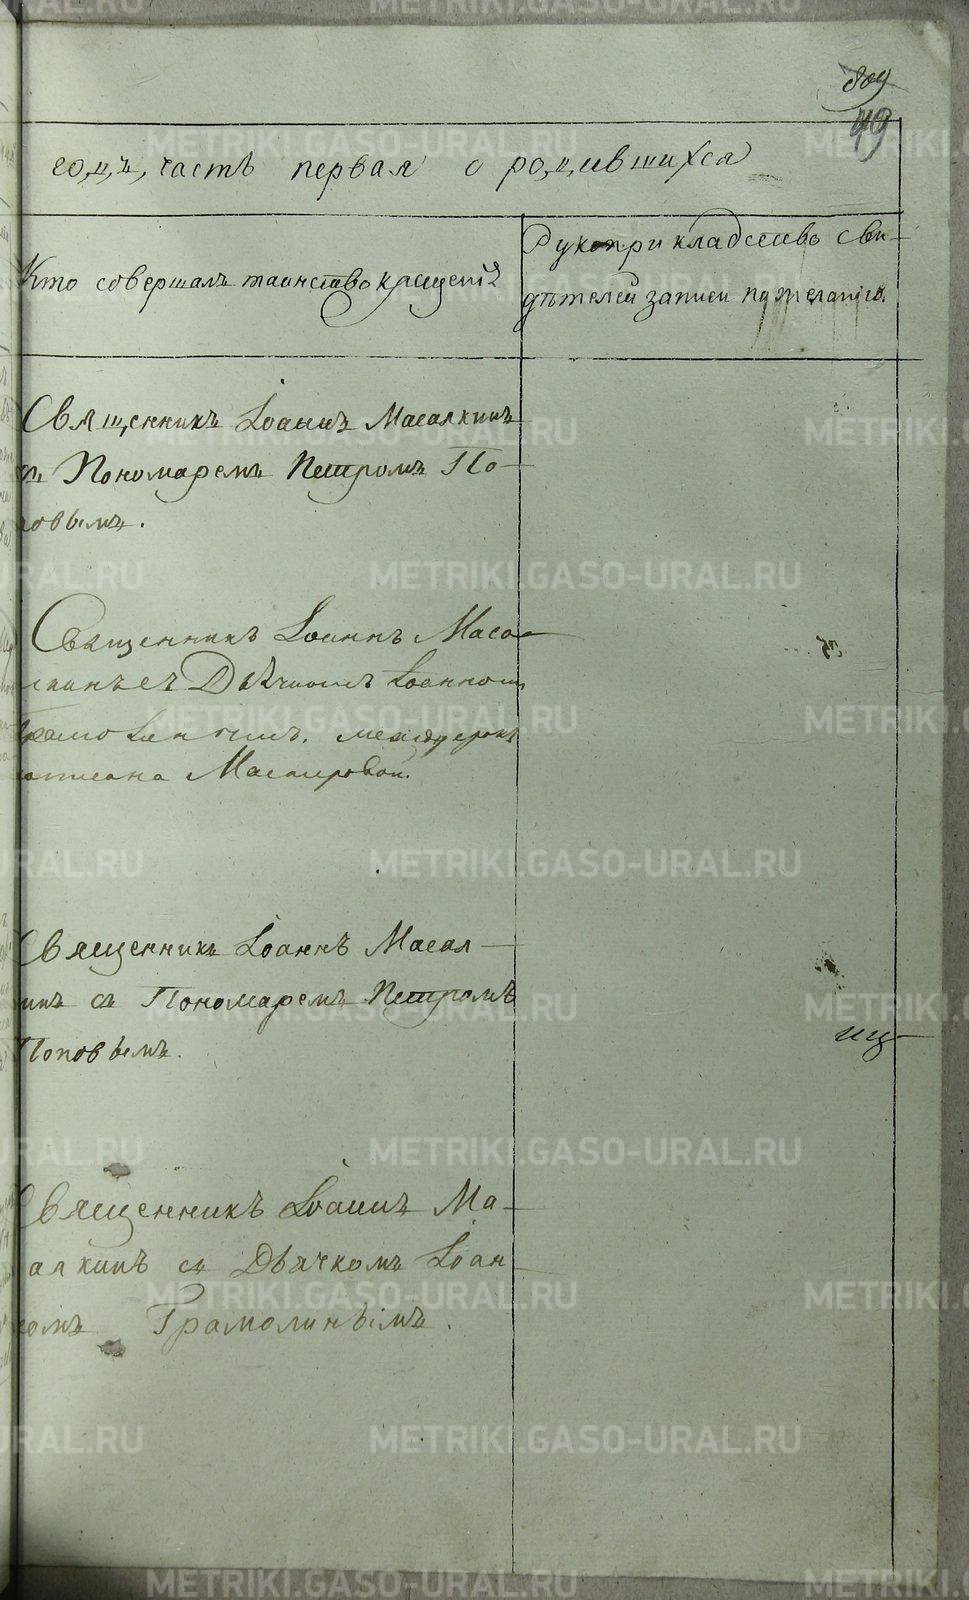 809
49
годъ, часть первая о родившихся
Кто совершалъ таинство крещенія
Рукоприкладство сви-
дѣтелей записи по желанію.
Священникъ Іоаннъ Масалкинъ
съ Пономаремъ Петромъ По-
повымъ.
Священникъ Іоаннъ Маса-
Дьячкомъ Іоанномъ
Священникъ Іоаннъ Масал-
кинъ съ Пономаремъ Петромъ
Поповымъ.
Священникъ Іоаннъ Ма-
салкинъ съ Дьячкомъ Іоан-
номъ Грамолинымъ.
METRIKI.GASO-URAL.RU